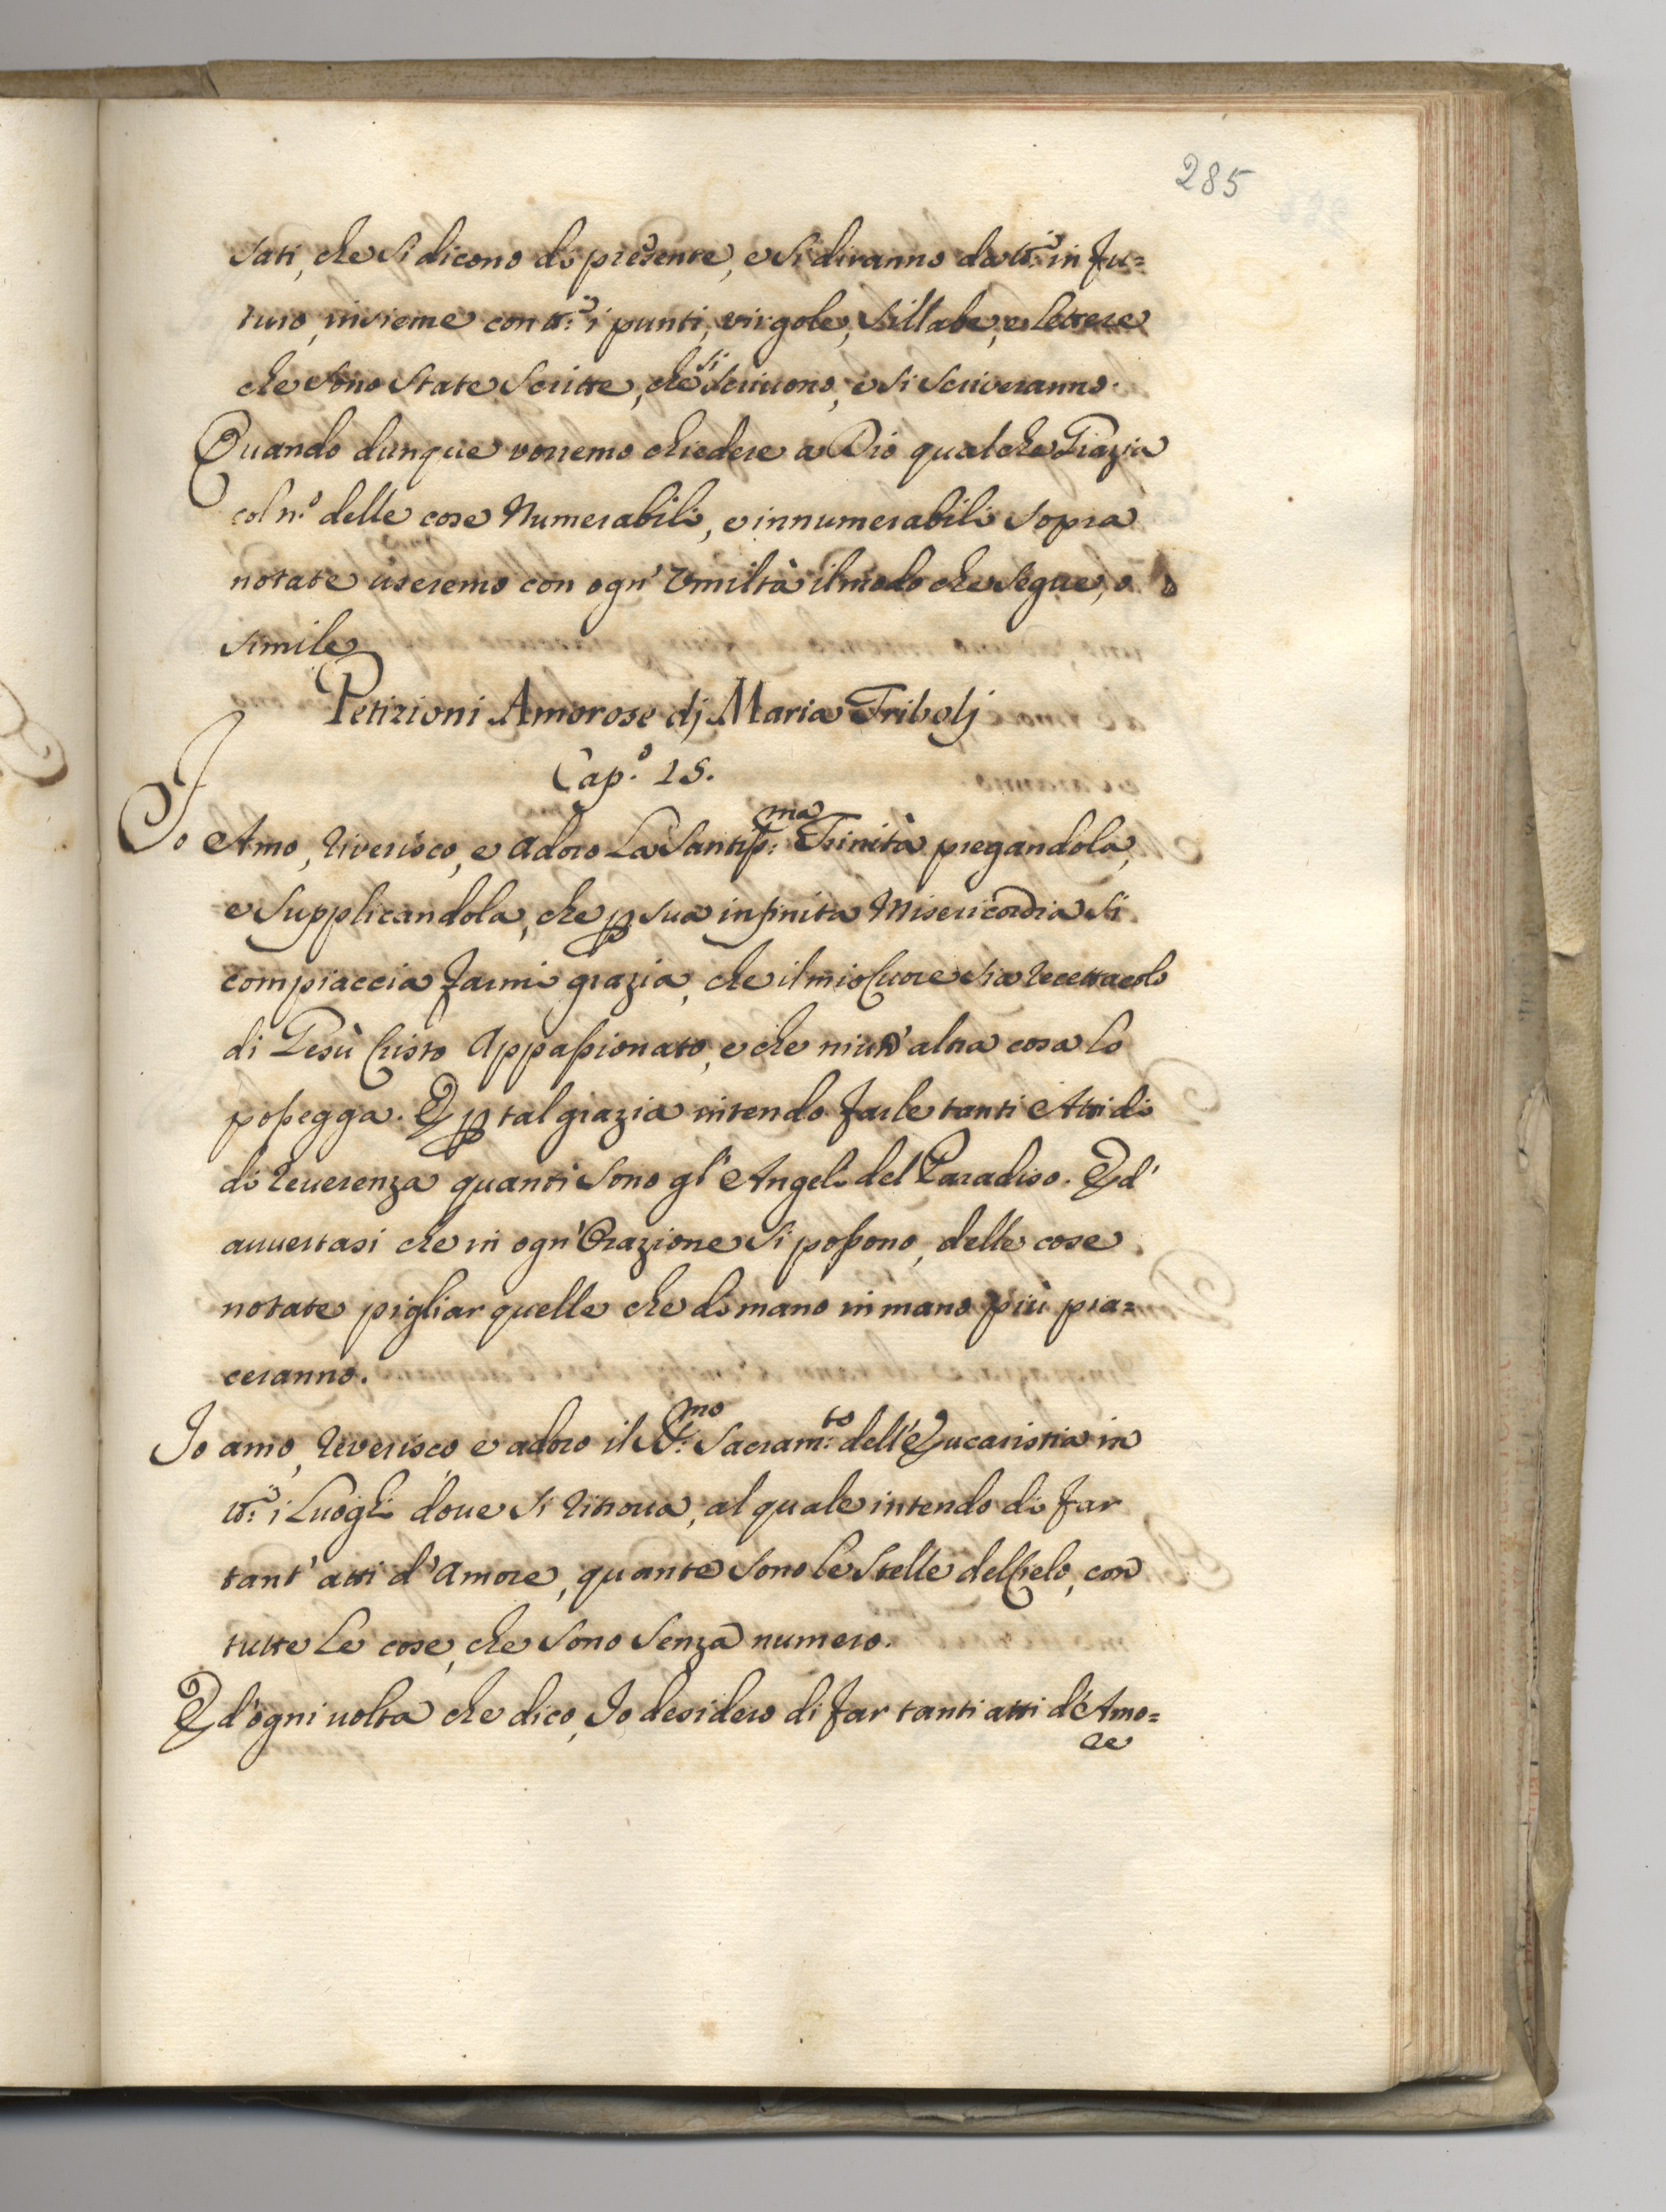 285
sati, che si dicono di presente, e si diranno da tt.i in fu=
turo, insieme con tt.i i punti, virgole, sillabe, e lettere
che sono state scritte, che si scriuono, e si scriveranno.
Quando dunque vorremo chiedere a Dio qualche Grazia
col n.o delle cose Numerabili, e innumerabili sopra
notate useremo con ogn' Vmiltà il modo che segue, o
simile
Petizioni Amorose dj Maria Tribolj
Cap.o 15.
Io Amo, riverisco, e adoro La Santiss:ma Trinità pregandola,
e Supplicandola, che p sua infinita Misericordia si
compiaccia farmi grazia, che il mio Cuore sia recettacolo
di Gesù Cristo Appassionato, e che niun' altra cosa lo
possegga. E p tal grazia intendo farle tanti Atti di
di reuerenza quanti sono gl' Angeli del Paradiso. Ed'
auuertasi che in ogn' Orazione si possono, delle cose
notate pigliar quelle che di mano in mano più pia=
ceranno.
Io amo, reverisco, e adoro il S:mo Sacram:to dell'Eucaristia in
tt.i i Luoghi doue si ritroua, al quale intendo di far
tant' atti d'Amore, quante sono le Stelle del Cielo, con
tutte le cose, che sono senza numero.
Ed'ogni uolta che dico, Io desidero di far tanti atti d'Amo=
re